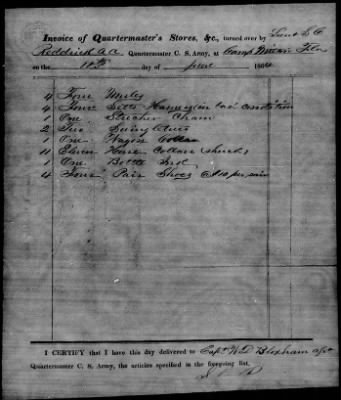 Invoice of Quartermaster's Stores, &c., turned over by Lieut
Reddick A.C. Quartermaster C. S. Army, at Camp Fla
on the 10th day of June 1864
4 Four Mules
4 Four Setts Harness in bad condition
1 One Stretcher Chain
2 Two Swingletrees
1 One Wagon Collar
11 Eleven Horse Collars (shuck)
1 One Bottle Ink
4 Four Pair Shoes @ $10 per pair
I CERTIFY that I have this day delivered to Capt W D Bloxham
Quartermaster C. S. Army, the articles specified in the foregoing list.